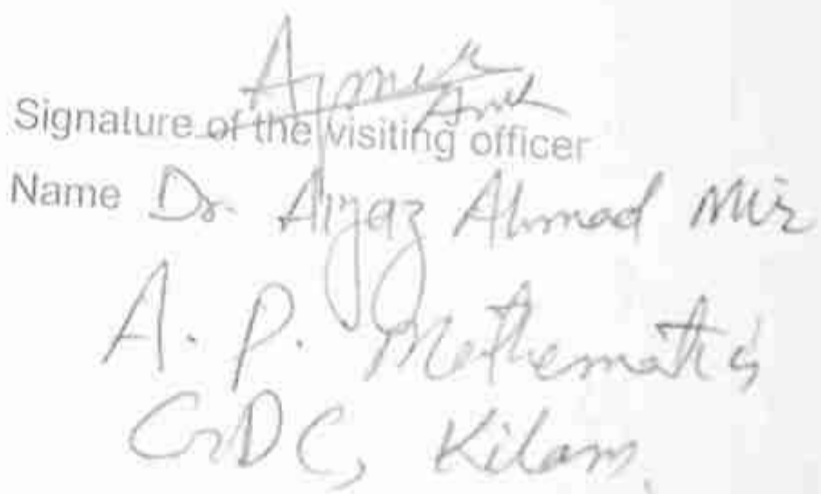 Signature of the visiting officer
Name Dr. Aijaz Ahmad Mir
A. P. Mathematics
GDC, Kilam